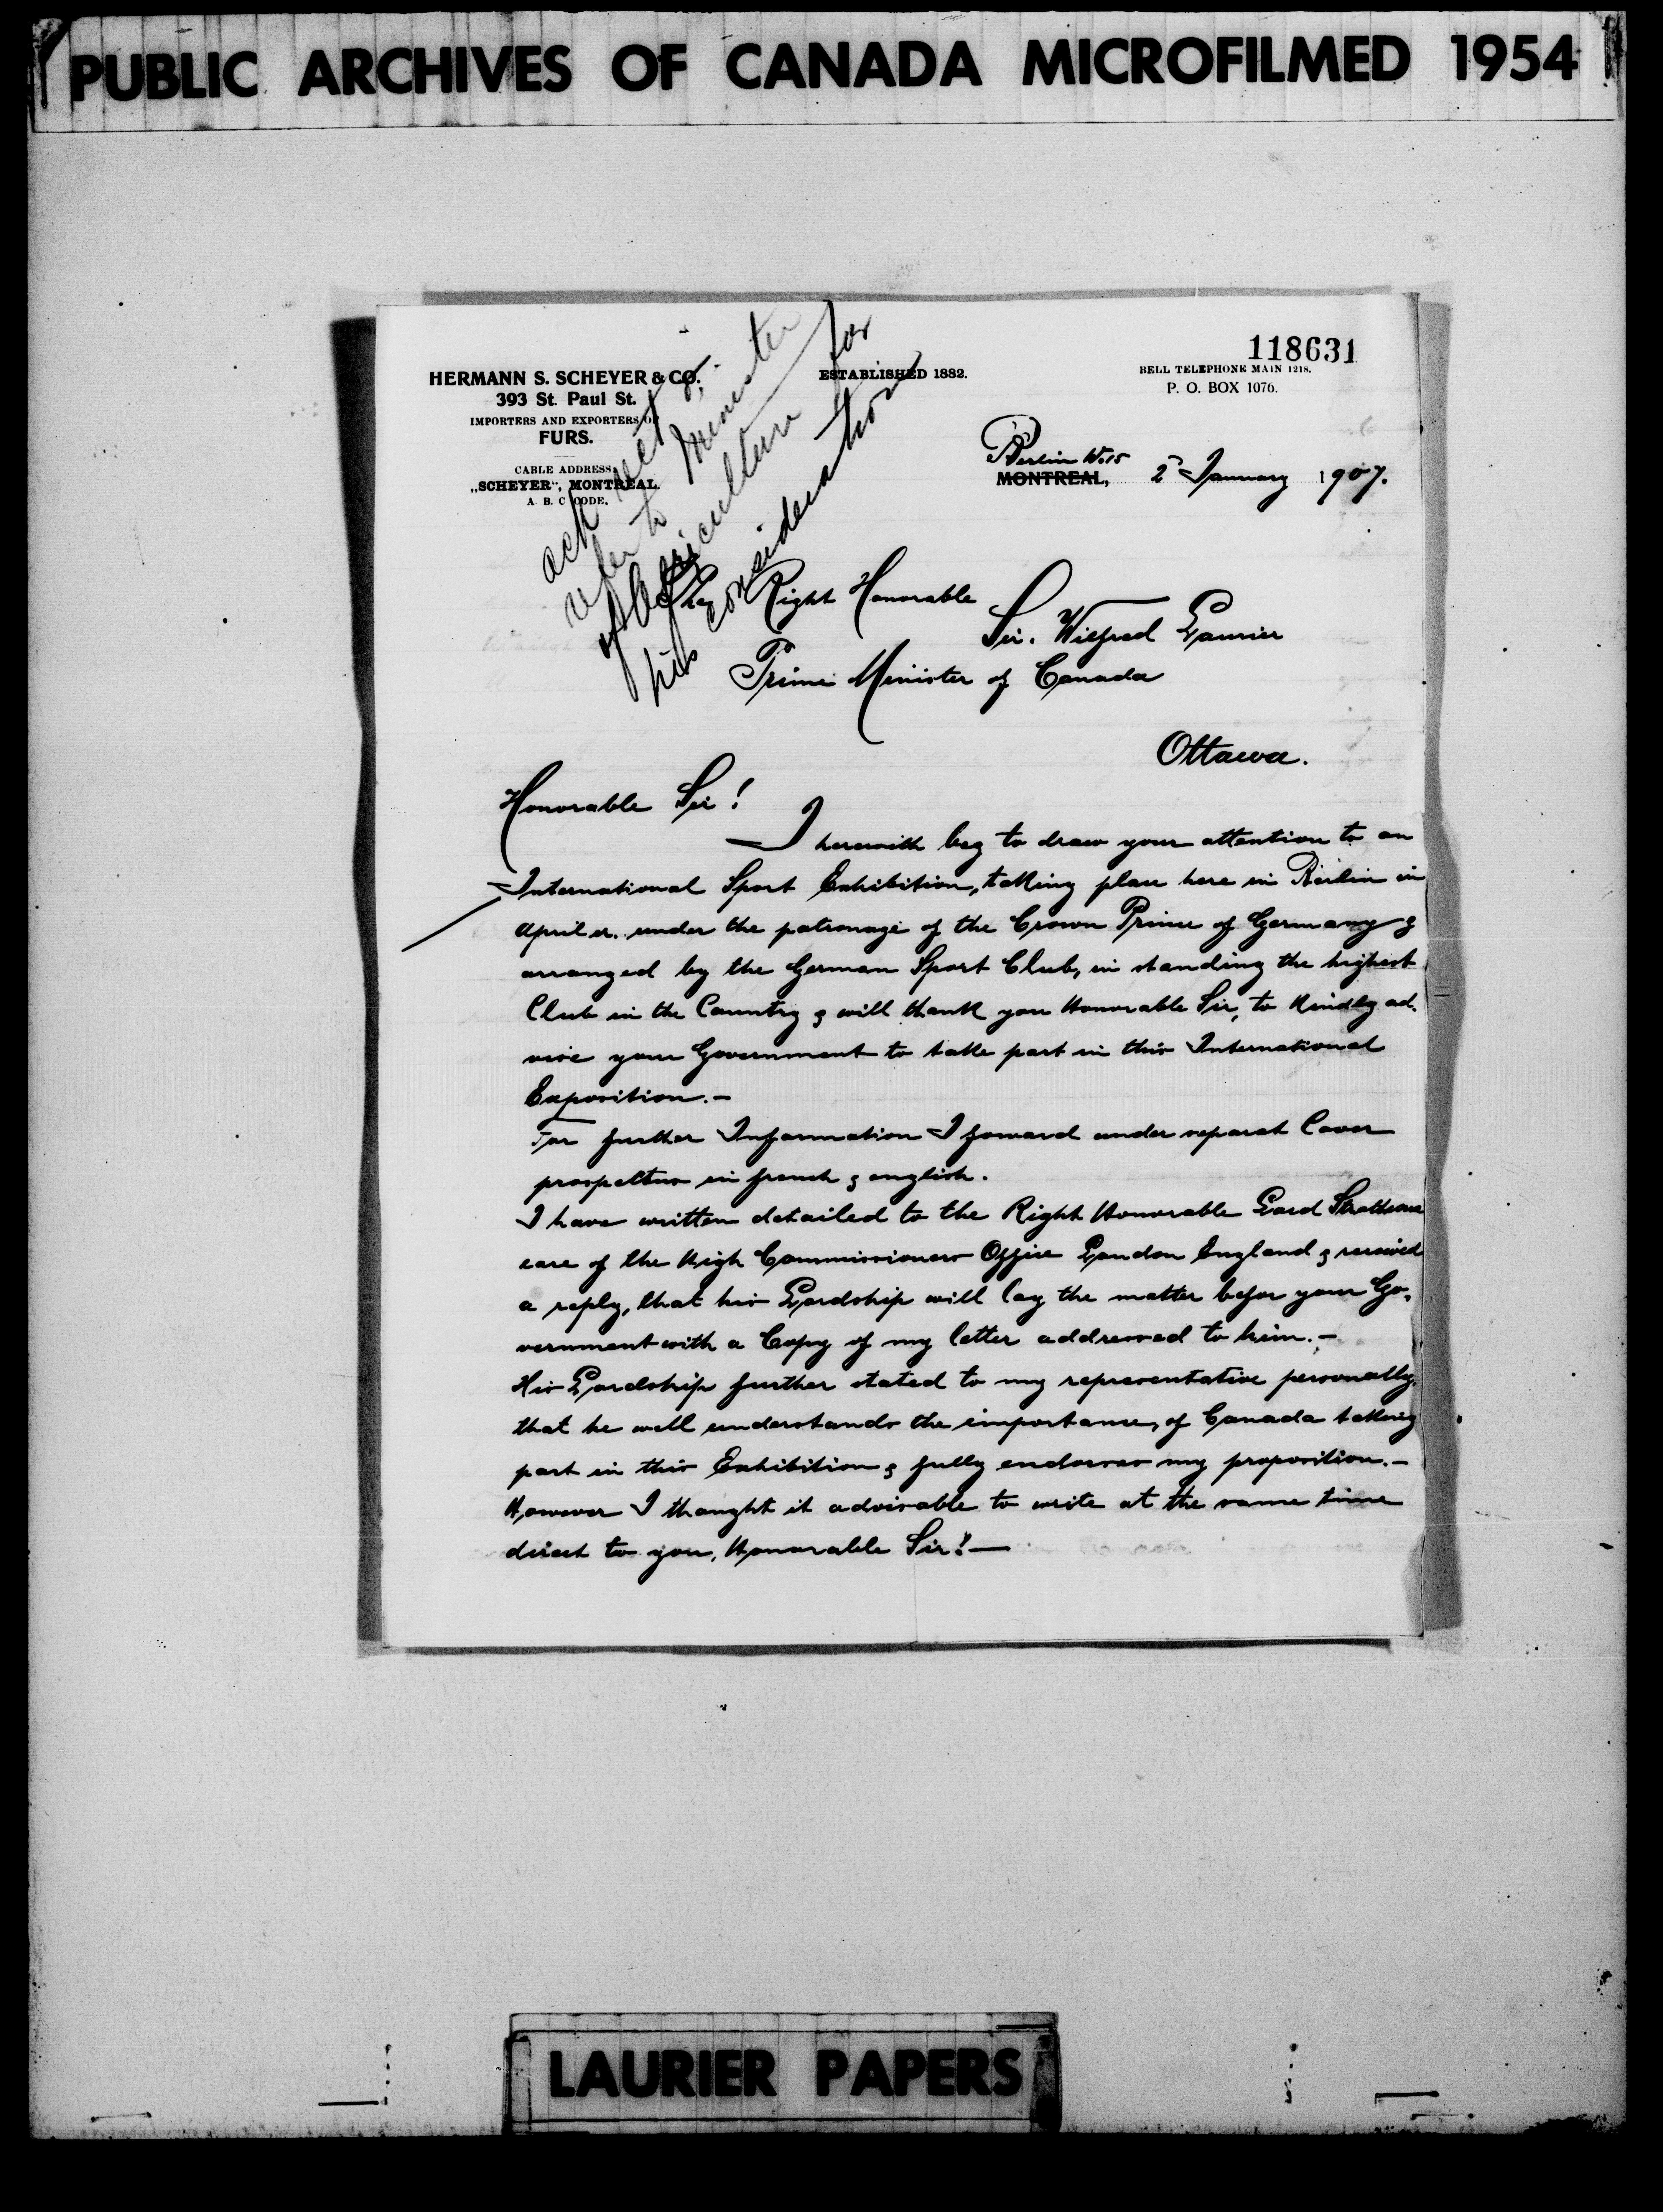 PUBLIC ARCHIVES OF CANADA MICROFILMED 1954
118631
HERMANN S. SCHEYER & CO.
393 St. Paul St.
IMPORTERS AND EXPORTERS OF
FURS.
CABLE ADDRESS
„SCHEYER", MONTREAL.
A. B. C CODE.
ESTABLISHED 1882.
BELL TELEPHONE MAIN 1218.
P. O. BOX 1076.
Berlin W.15
MONTREAL, 2 January 1907.
ack
refer to Minister
of Agriculture for
his consideration
The Right Honorable
Sir. Wilfred Laurier
Prime Minister of Canada
Ottawa.
Honorable Sir!
I herewith beg to draw your attention to an
International Sport Exhibition, taking place here in Berlin in
April under the patronage of the Crown Prince of Germany &
arranged by the German Sport Club, in standing the highest
Club in the Country & will thank you Honorable Sir, to kindly ad-
vise your Government to take part in this International
Exposition.-
For further Information I foward under separat Cover
prospektus in french & english.
I have written detailed to the Right Honorable Lord Strathcona
care of the High Commissioners Office London England & received
a reply, that his Lordship will lay the matter befor your Go-
vernment with a Copy of my letter addressed to him.-
His Lordship further stated to my representative personally,
that he well understands the importance, of Canada taking
part in this Exhibition & fully endorses my proposition.-
However I thought it advisable to write at the same time
direct to you, Honorable Sir!-
LAURIER PAPERS